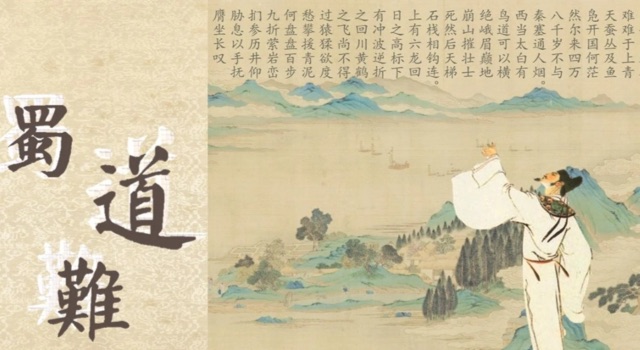 难难于上青
天蚕丛及鱼
凫开国何茫
然尔来四万
八千岁不与
秦塞通人烟。
西当太白有
鸟道可以横
绝峨眉巅地
崩山摧壮士
死然后天梯
石栈相钩连。
上有六龙回
日之高标下
有冲波逆折
之回川黄鹤
之飞尚不得
过猿猱欲度
愁攀援青泥
何盘盘百步
九折萦岩峦
扪参历井仰
胁息以手抚
膺坐长叹
蜀道難